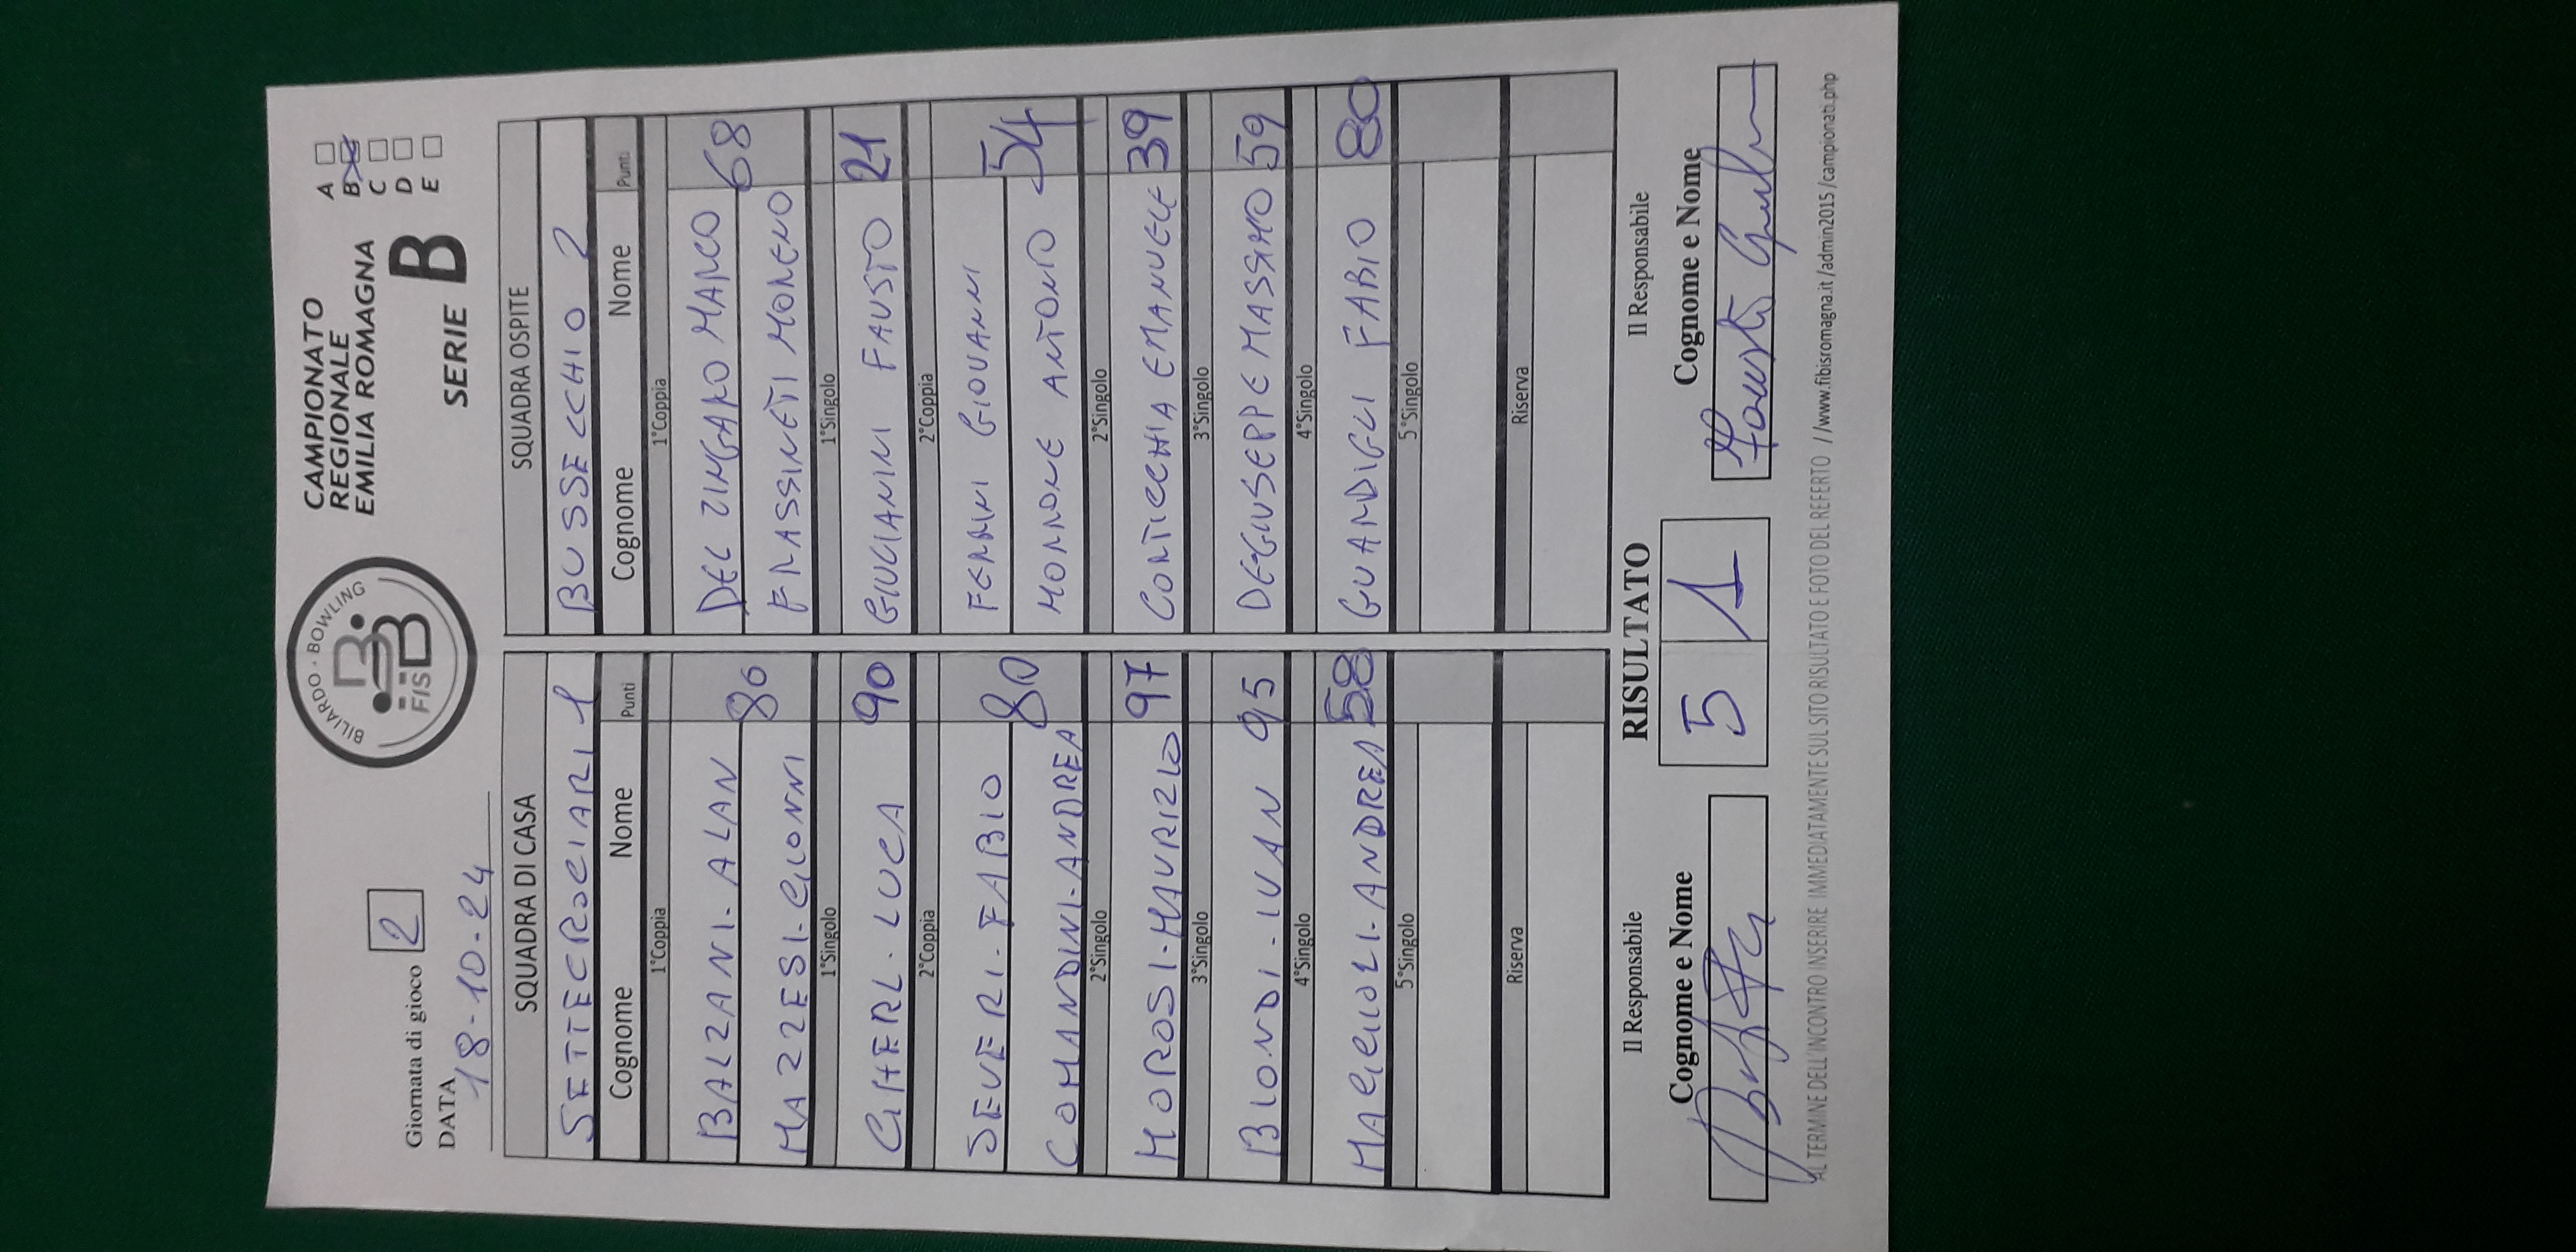 Giornata di gioco 2
DATA
18-10-24
BILIARDO · BOWLING
FISBB
CAMPIONATO
REGIONALE
EMILIA ROMAGNA
SERIE B
A
B
C
D
E
SQUADRA DI CASA
SETTECROCIARI 1
Cognome Nome Punti
1°Coppia
BALZANI - ALAN
MAZZESI - GIONNI 80
1°Singolo
GHERL - LUCA 90
2°Coppia
SEVERI - FABIO
COMANDINI - ANDREA 80
2°Singolo
MOROSI - MAURIZIO 97
3°Singolo
BIONDI - IVAN 95
4°Singolo
MAGGIOLI - ANDREA 58
5°Singolo
Riserva
SQUADRA OSPITE
BUSSECCHIO 2
Cognome Nome Punti
1°Coppia
DEL ZINGARO MARCO
FRASSINETI MORENO 68
1°Singolo
GIULIANINI FAUSTO 21
2°Coppia
FERRINI GIOVANNI
MORRONE ANTONIO 54
2°Singolo
CONTICCHIA EMANUELE 39
3°Singolo
DEGIUSEPPE MASSIMO 59
4°Singolo
GUARDIGLI FABIO 80
5°Singolo
Riserva
Il Responsabile
Cognome e Nome
RISULTATO
5 1
Il Responsabile
Cognome e Nome
AL TERMINE DELL'INCONTRO INSERIRE IMMEDIATAMENTE SUL SITO RISULTATO E FOTO DEL REFERTO //www.fibisromagna.it /admin2015 /campionati.php